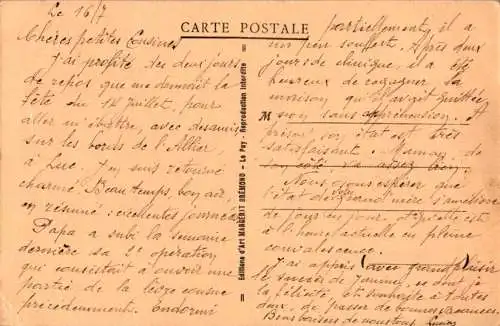 Le 16/7
CARTE POSTALE
Chères petites Cousines
J'ai profité des deux jours
de repos que me donnait la
fête du 14 juillet, pour
aller m'ébattre, avec des amis
sur les bords de l'Allier
à Luc. J'en suis retourné
charmé. Beau temps, bon air,
en résumé : excellentes journées
Papa a subi la semaine
dernière sa 2e opération
qui consistait à ouvrir une
partie de la
précédemment. Endormi
Editions d'Art MARGERIT BRÉMOND - Le Puy - Reproduction interdite
partiellement, il a
un peu souffert. Après deux
jours de clinique, il a été
heureux de regagner la
maison qu'il avait quittée
M non sans appréhension. A
présent son état est très
satisfaisant. Maman, de
son côté, va assez bien.
Nous osons espérer que
l'état de grand'mère s'améliore
de jour en jour et qu'elle est
à l'heure actuelle en pleine
convalescence.
J'ai appris (avec grand plaisir
le succès de dont je
la félicite, et souhaite à toutes
deux, de passer de bonnes vacances.
Bons baisers de nous tous